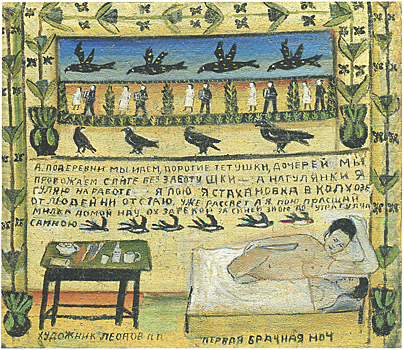 А ПО ДЕРЕВНИ МЫ ИДЕМ, ДОРОГИЕ ТЕТУШКИ, ДОЧЕРЕЙ МЫ
ПРОВОЖАЕМ СПИТЕ БЕЗ ЗАБОТУШКИ — А НАГУЛЯНКИ Я
ГУЛЯЮ НА РАБОТЕ — Я ПОЮ Я СТАХАНОВКА В КОЛХОЗЕ
ОТ ЛЮДЕЙ НИ ОТСТАЮ. УЖЕ РАССВЕТ А Я ПОЮ ПРАСЩАЙ
МИЛКА ДОМОЙ ИДУ. ОХ ЗАРЕКОЙ ЗА СИНЕЙ ДО УТРА ГУЛЯЛ
САМНОЮ
ХУДОЖНИК ЛЕОНОВ П.П.
ПЕРВАЯ БРАЧНАЯ НОЧ